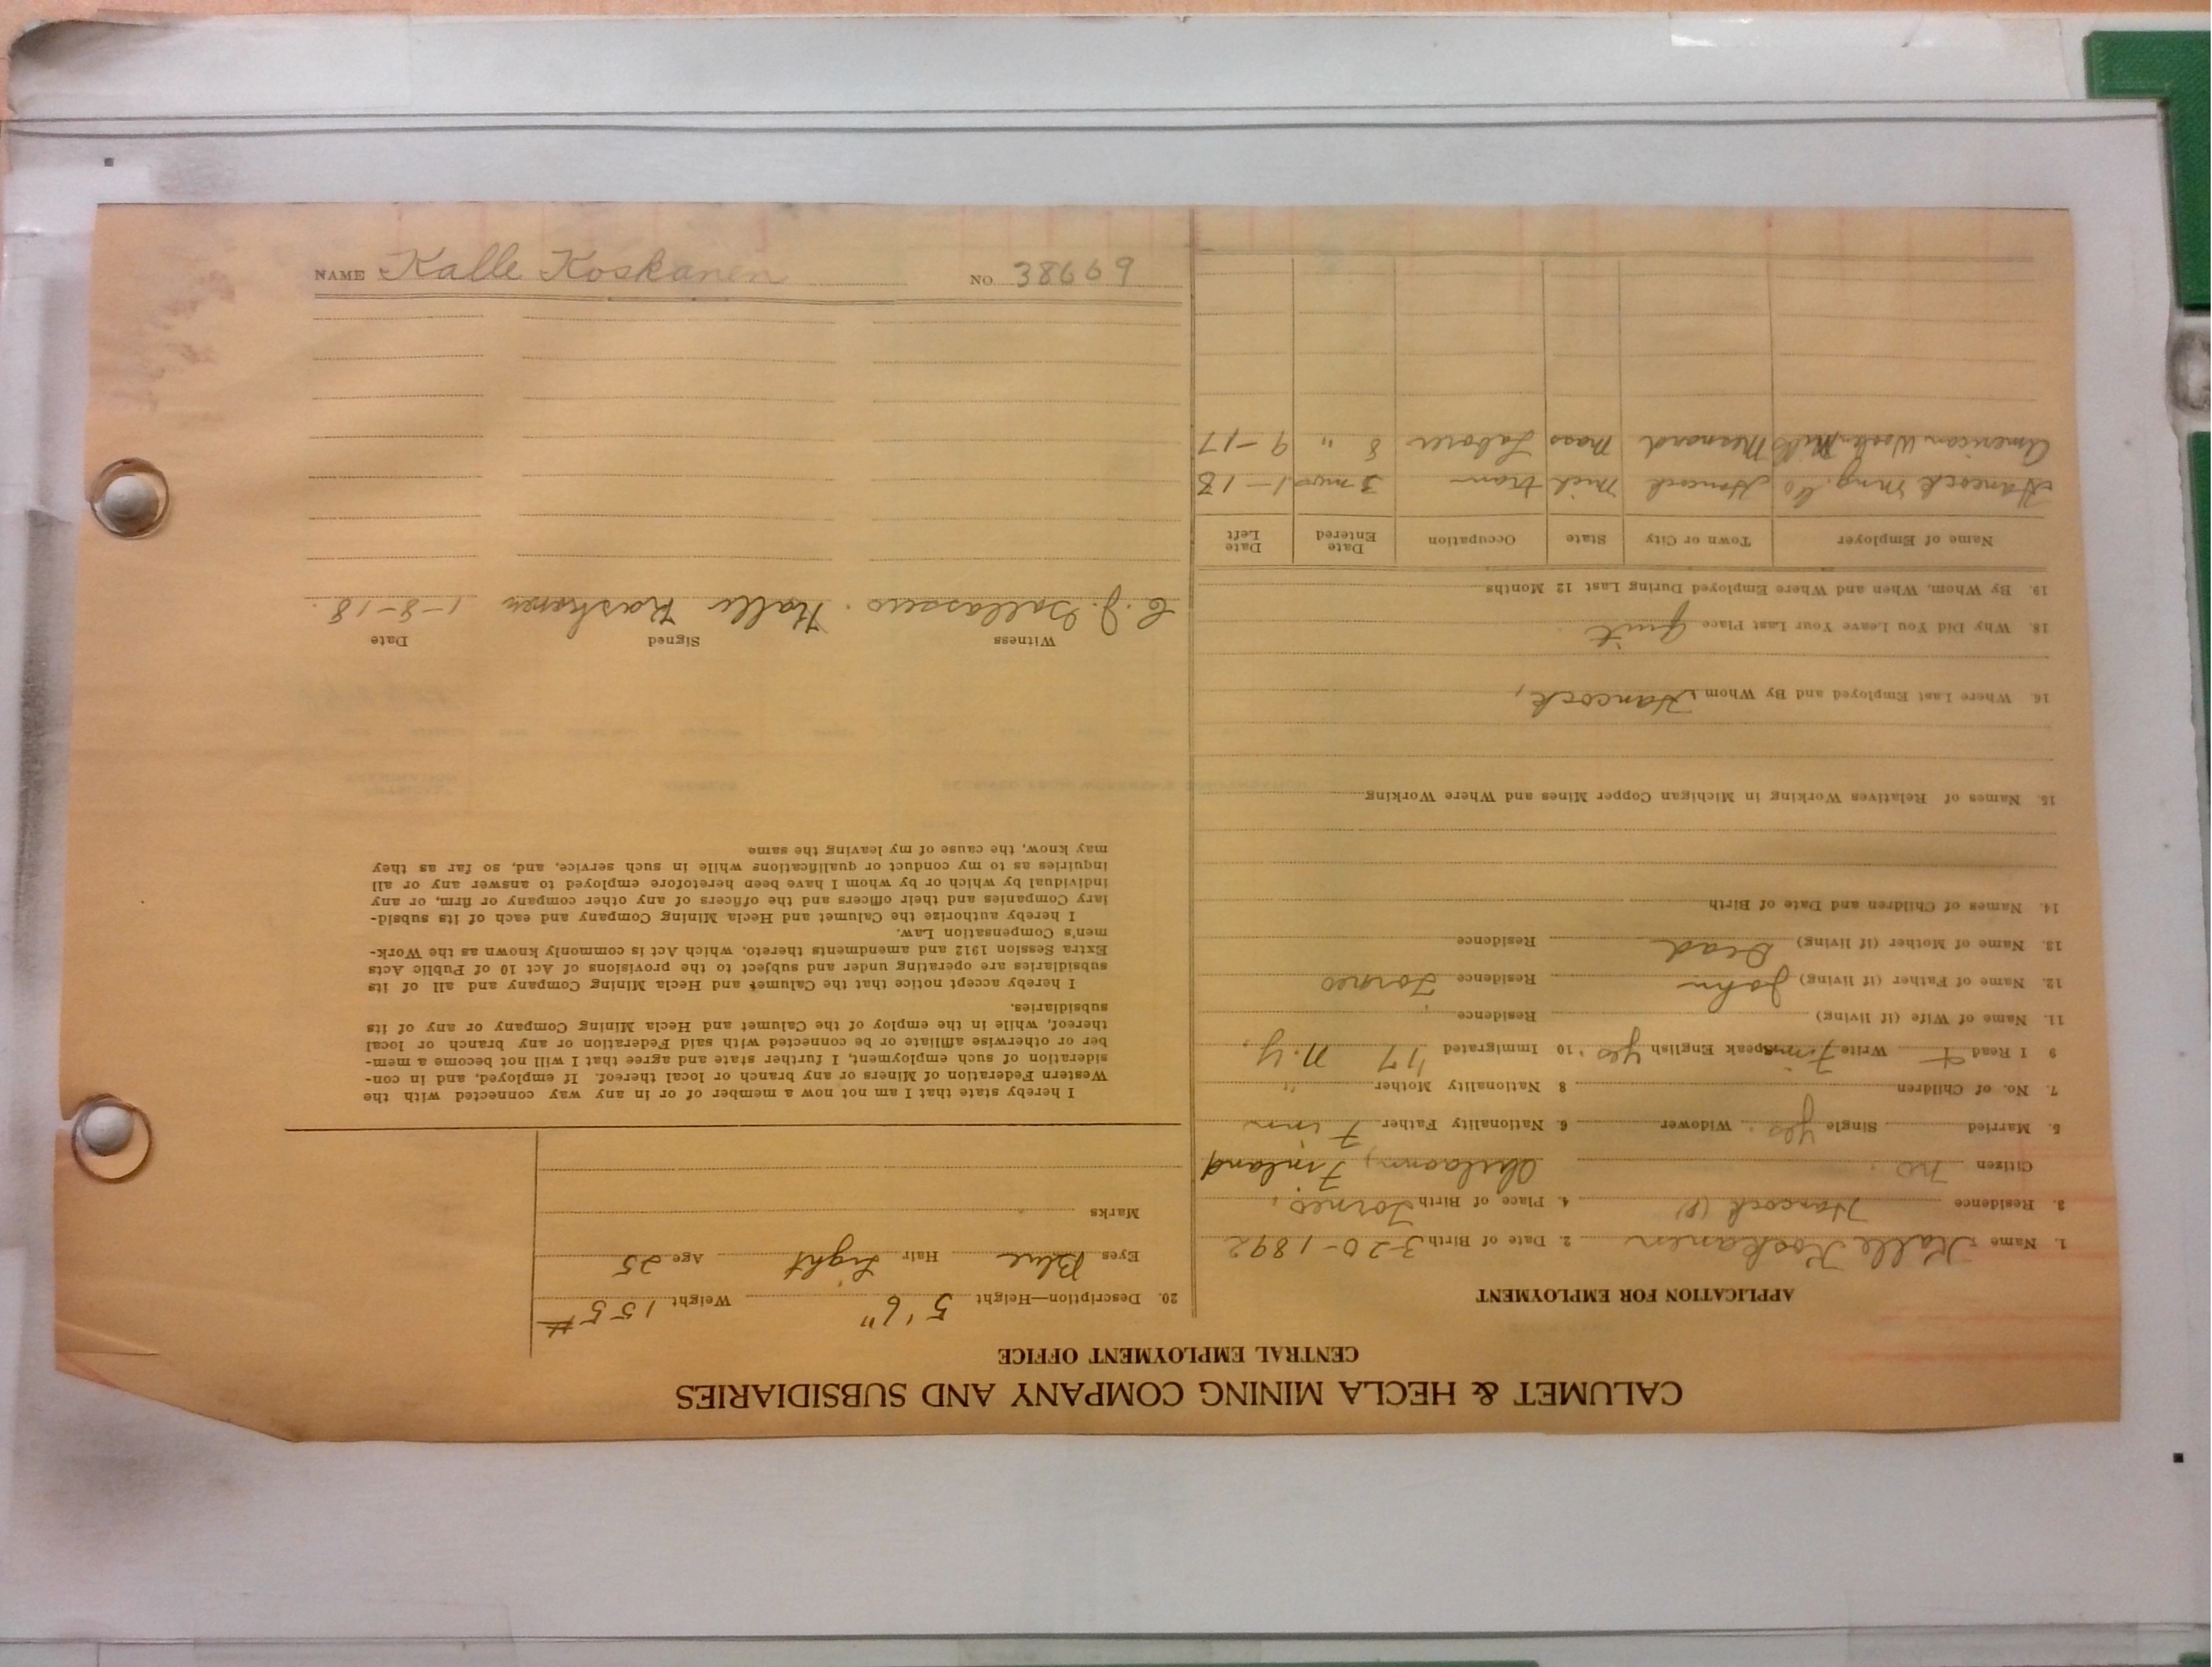 CALUMET & HECLA MINING COMPANY AND SUBSIDIARIES
CENTRAL EMPLOYMENT OFFICE
APPLICATION FOR EMPLOYMENT
1. Name Kalle Koskanen 2. Date of Birth 3-20-1892
3. Residence Hancock (P) 4. Place of Birth Torneo,
Citizen no. Finland
5. Married Single yes. Widower 6. Nationality Father Finn
7. No. of Children 8 Nationality Mother "
9 I Read + Write Finn Speak English yes. 10 Immigrated '17 N.Y.
11. Name of Wife (if living) Residence
12. Name of Father (if living) John Residence Torneo
13. Name of Mother (if living) Dead Residence
14. Names of Children and Date of Birth
15. Names of Relatives Working in Michigan Copper Mines and Where Working
16. Where Last Employed and By Whom Hancock,
18. Why Did You Leave Your Last Place quit
19. By Whom, When and Where Employed During Last 12 Months
Name of Employer Town or City State Occupation Date Entered Date Left
Hancock Mng. Co Hancock Mich tram 3 mos 1-18
American Woolen Mills Maynard Mass Laborer 8 " 9-17
20. Description—Height 5'6" Weight 155#
Eyes Blue Hair Light Age 25
Marks
I hereby state that I am not now a member of or in any way connected with the
Western Federation of Miners or any branch or local thereof. If employed, and in con-
sideration of such employment, I further state and agree that I will not become a mem-
ber or otherwise affiliate or be connected with said Federation or any branch or local
thereof, while in the employ of the Calumet and Hecla Mining Company or any of its
subsidiaries.
I hereby accept notice that the Calumet and Hecla Mining Company and all of its
subsidiaries are operating under and subject to the provisions of Act 10 of Public Acts
Extra Session 1912 and amendments thereto, which Act is commonly known as the Work-
men's Compensation Law.
I hereby authorize the Calumet and Hecla Mining Company and each of its subsid-
iary Companies and their officers and the officers of any other company or firm, or any
individual by which or by whom I have been heretofore employed to answer any or all
inquiries as to my conduct or qualifications while in such service, and, so far as they
may know, the cause of my leaving the same
Witness Signed Date
C. J. Kalle Koskanen 1-8-18.
NAME Kalle Koskanen NO. 38669